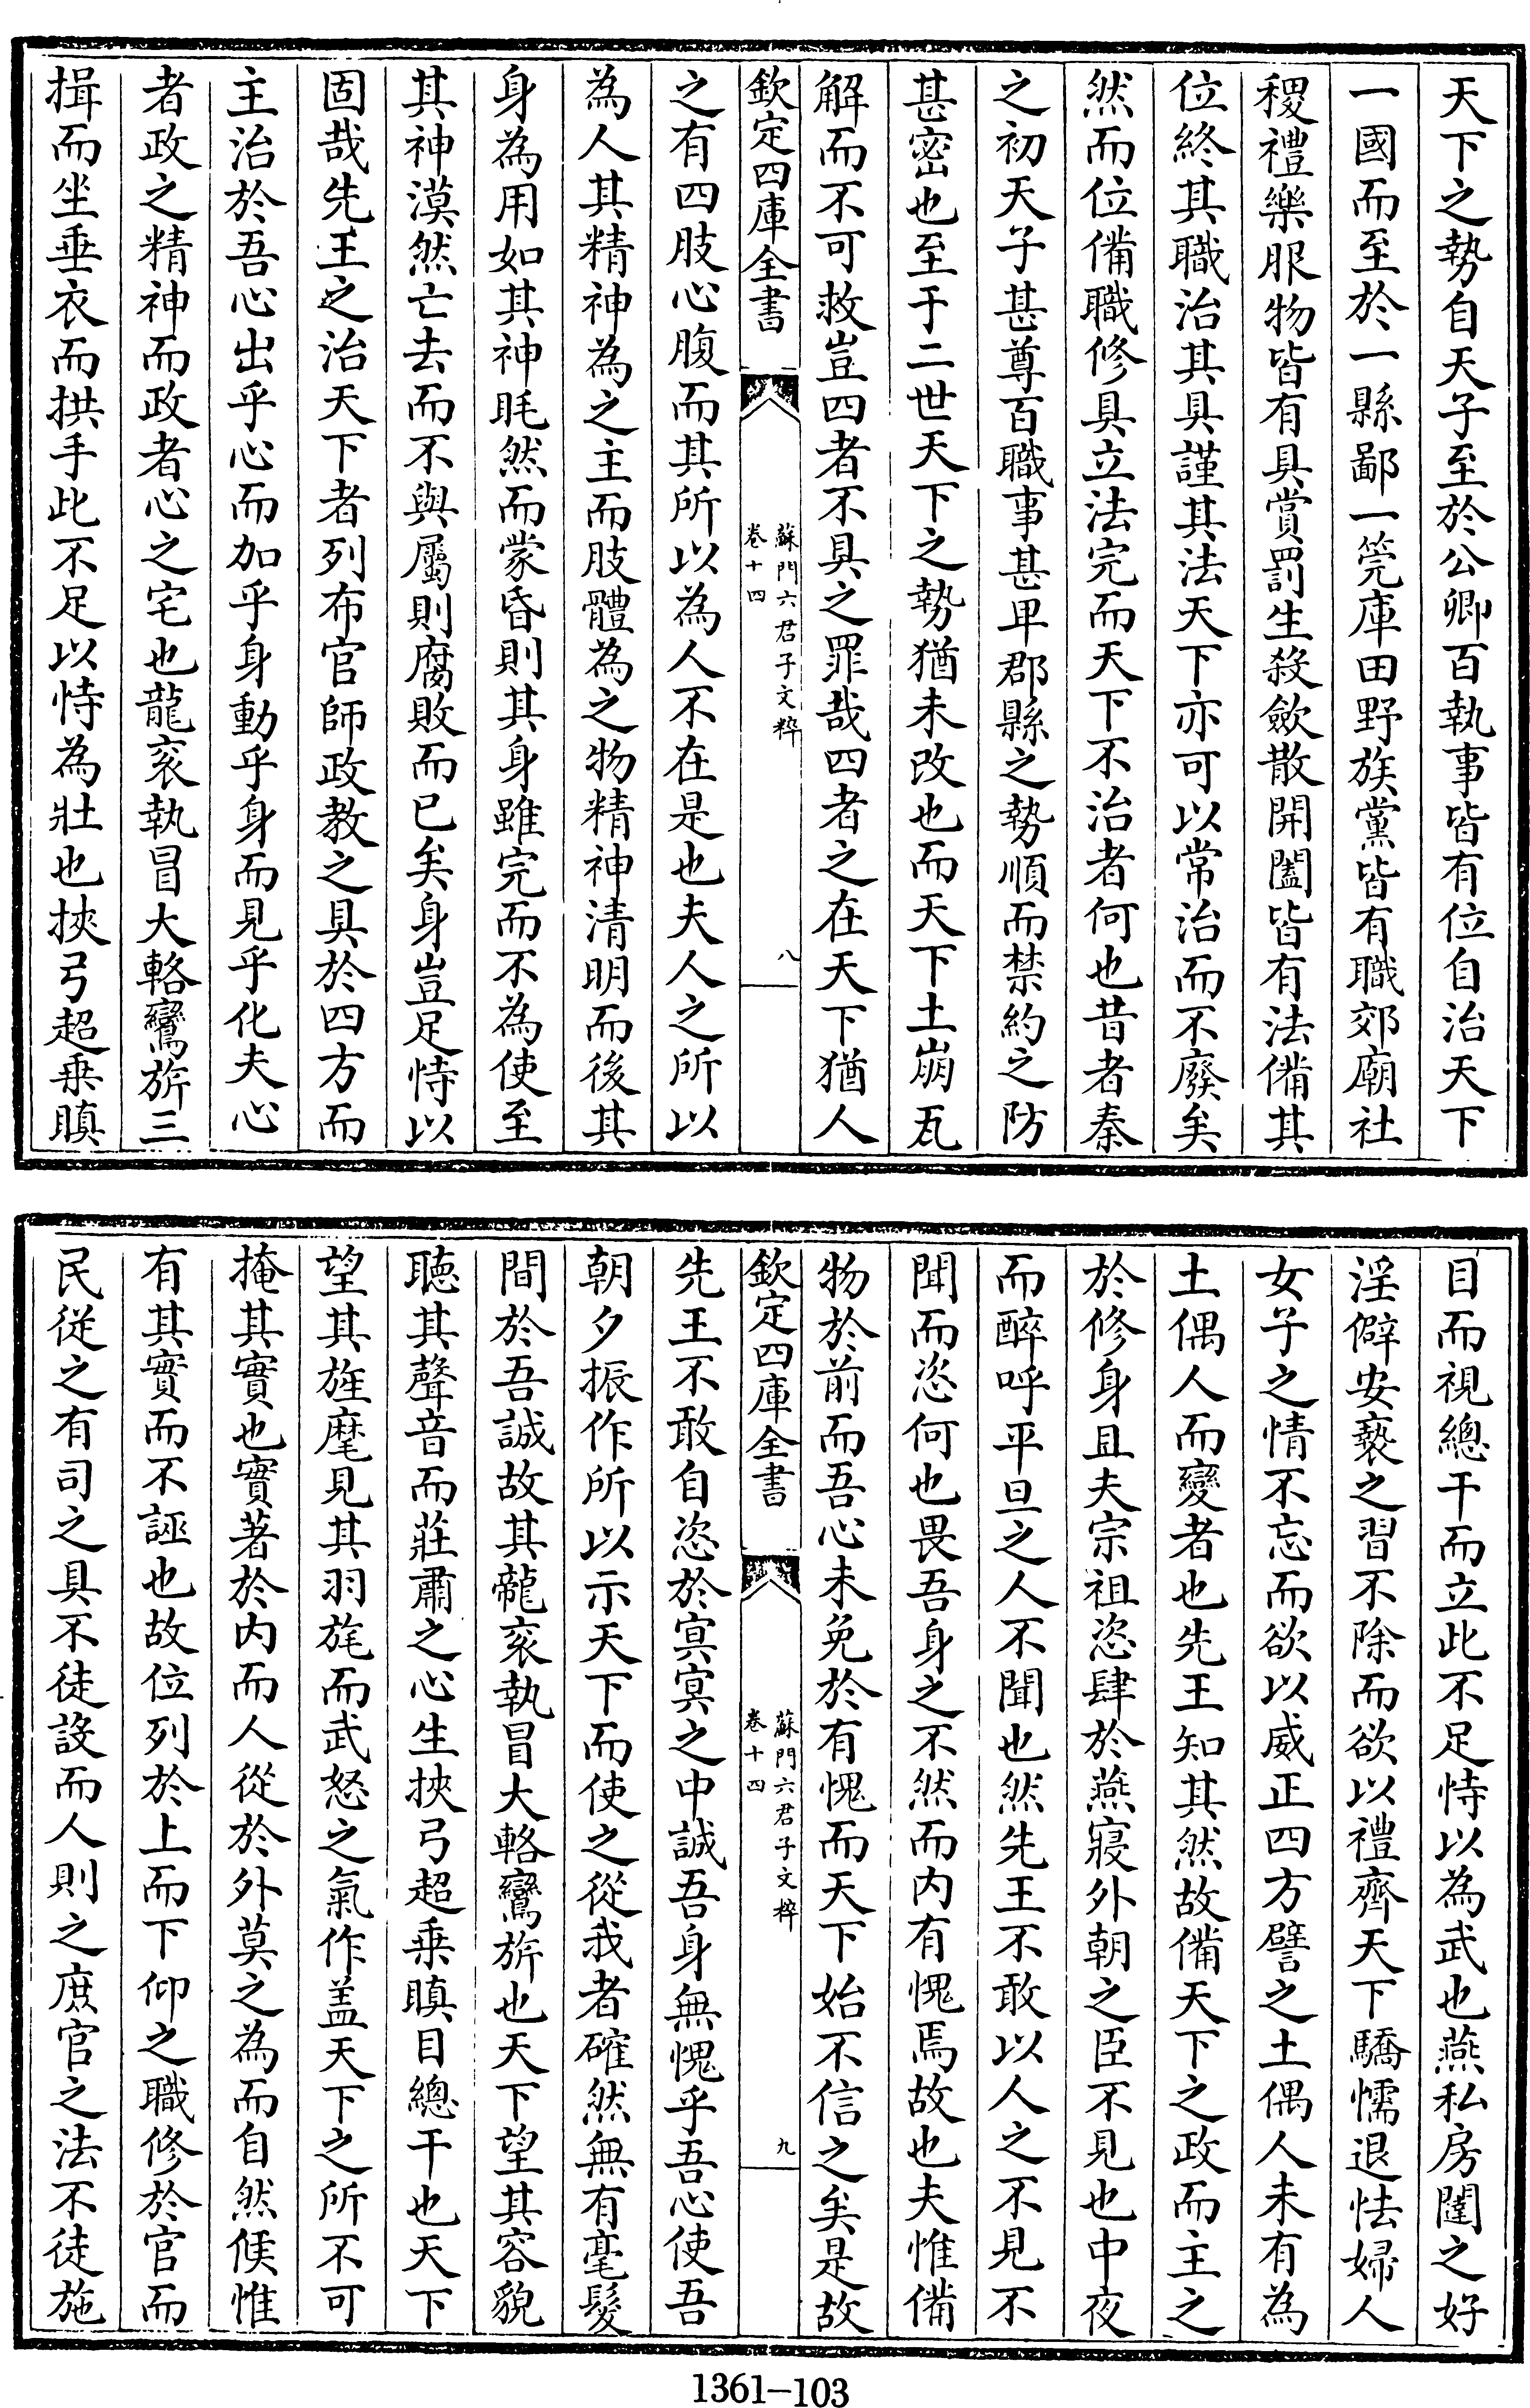 天下之勢自天子至於公卿百執事皆有位自治天下
一國而至於一縣鄙一筦庫田野族黨皆有職郊廟社
稷禮樂服物皆有具賞罰生殺歛散開闔皆有法備其
位終其職治其具謹其法天下亦可以常治而不廢矣
然而位備職修具立法完而天下不治者何也昔者秦
之初天子甚尊百職事甚卑郡縣之勢順而禁約之防
甚密也至于二世天下之勢猶未改也而天下土崩瓦
解而不可救豈四者不具之罪哉四者之在天下猶人
欽定四庫全書
蘇門六君子文粹
卷十四
八
之有四肢心腹而其所以為人不在是也夫人之所以
為人其精神為之主而肢體為之物精神清明而後其
身為用如其神眊然而蒙昏則其身雖完而不為使至
其神漠然亡去而不與屬則腐敗而已矣身豈足恃以
固哉先王之治天下者列布官師政教之具於四方而
主治於吾心出乎心而加乎身動乎身而見乎化夫心
者政之精神而政者心之宅也龍衮執冒大輅鸞旂三
揖而坐垂衣而拱手此不足以恃為壯也挾弓超乗瞋
目而視總干而立此不足恃以為武也燕私房闥之好
淫僻安褻之習不除而欲以禮齊天下驕懦退怯婦人
女子之情不忘而欲以威正四方譬之土偶人未有為
土偶人而變者也先王知其然故備天下之政而主之
於修身且夫宗祖恣肆於燕寢外朝之臣不見也中夜
而醉呼平旦之人不聞也然先王不敢以人之不見不
聞而恣何也畏吾身之不然而内有愧焉故也夫惟備
物於前而吾心未免於有愧而天下始不信之矣是故
欽定四庫全書
蘇門六君子文粹
卷十四
九
先王不敢自恣於㝠㝠之中誠吾身無愧乎吾心使吾
朝夕振作所以示天下而使之從我者確然無有毫髮
間於吾誠故其龍衮執冒大輅鸞旂也天下望其容貌
聽其聲音而莊肅之心生挾弓超乗瞋目總干也天下
望其旌麾見其羽旄而武怒之氣作盖天下之所不可
掩其實也實著於内而人從於外莫之為而自然候惟
有其實而不誣也故位列於上而下仰之職修於官而
民從之有司之具不徒設而人則之庶官之法不徒施
1361-103